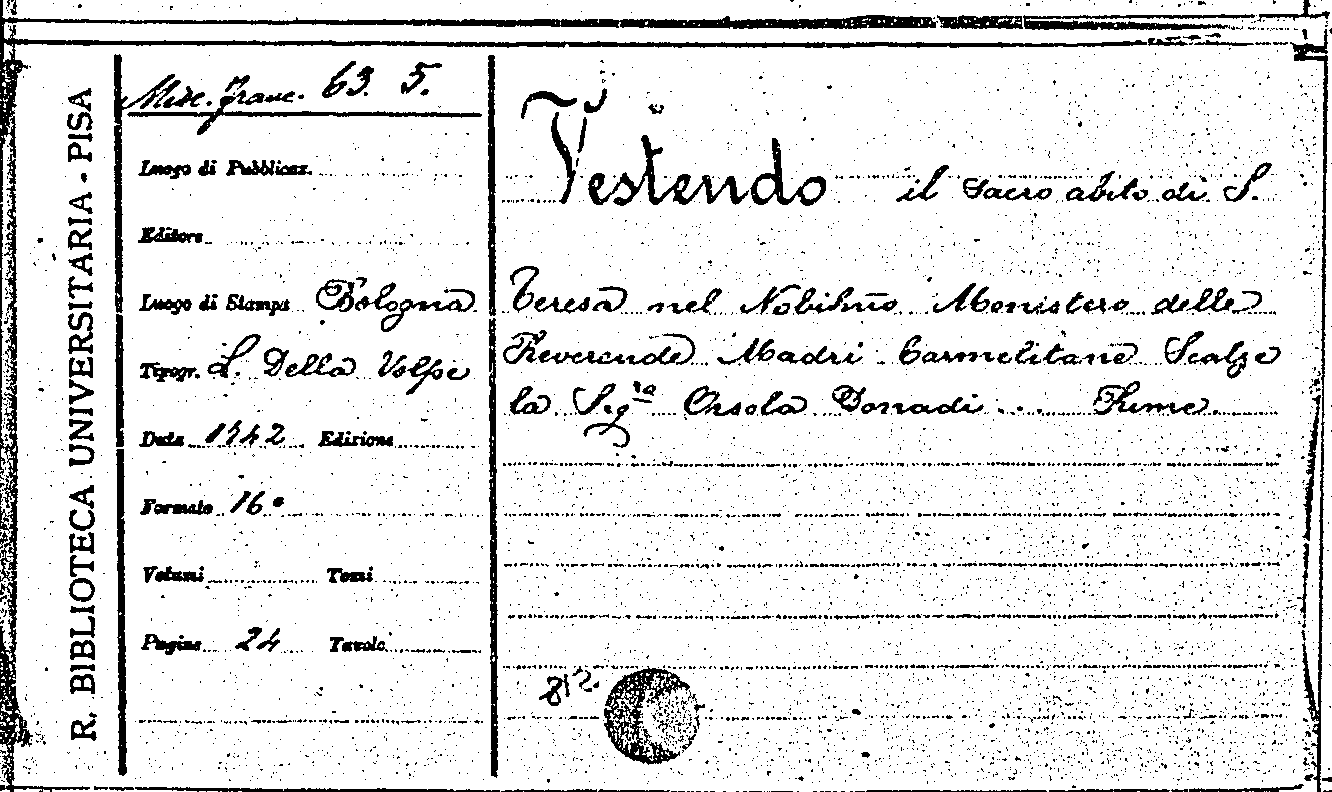 R. BIBLIOTECA UNIVERSITARIA - PISA
Misc. franc. 63. 5.
Luogo di Pubblicaz.
Editore
Luogo di Stampa Bologna
Tipogr. L. Della Volpe
Data 1742 Edizione
Formato 16°
Volumi Tomi
Pagine 24 Tavole
Vestendo il sacro abito di S.
Teresa nel Nobilmo Monistero delle
Reverende Madri Carmelitane Scalze
la Sigra Orsola Donnadi ... Rime.
812.